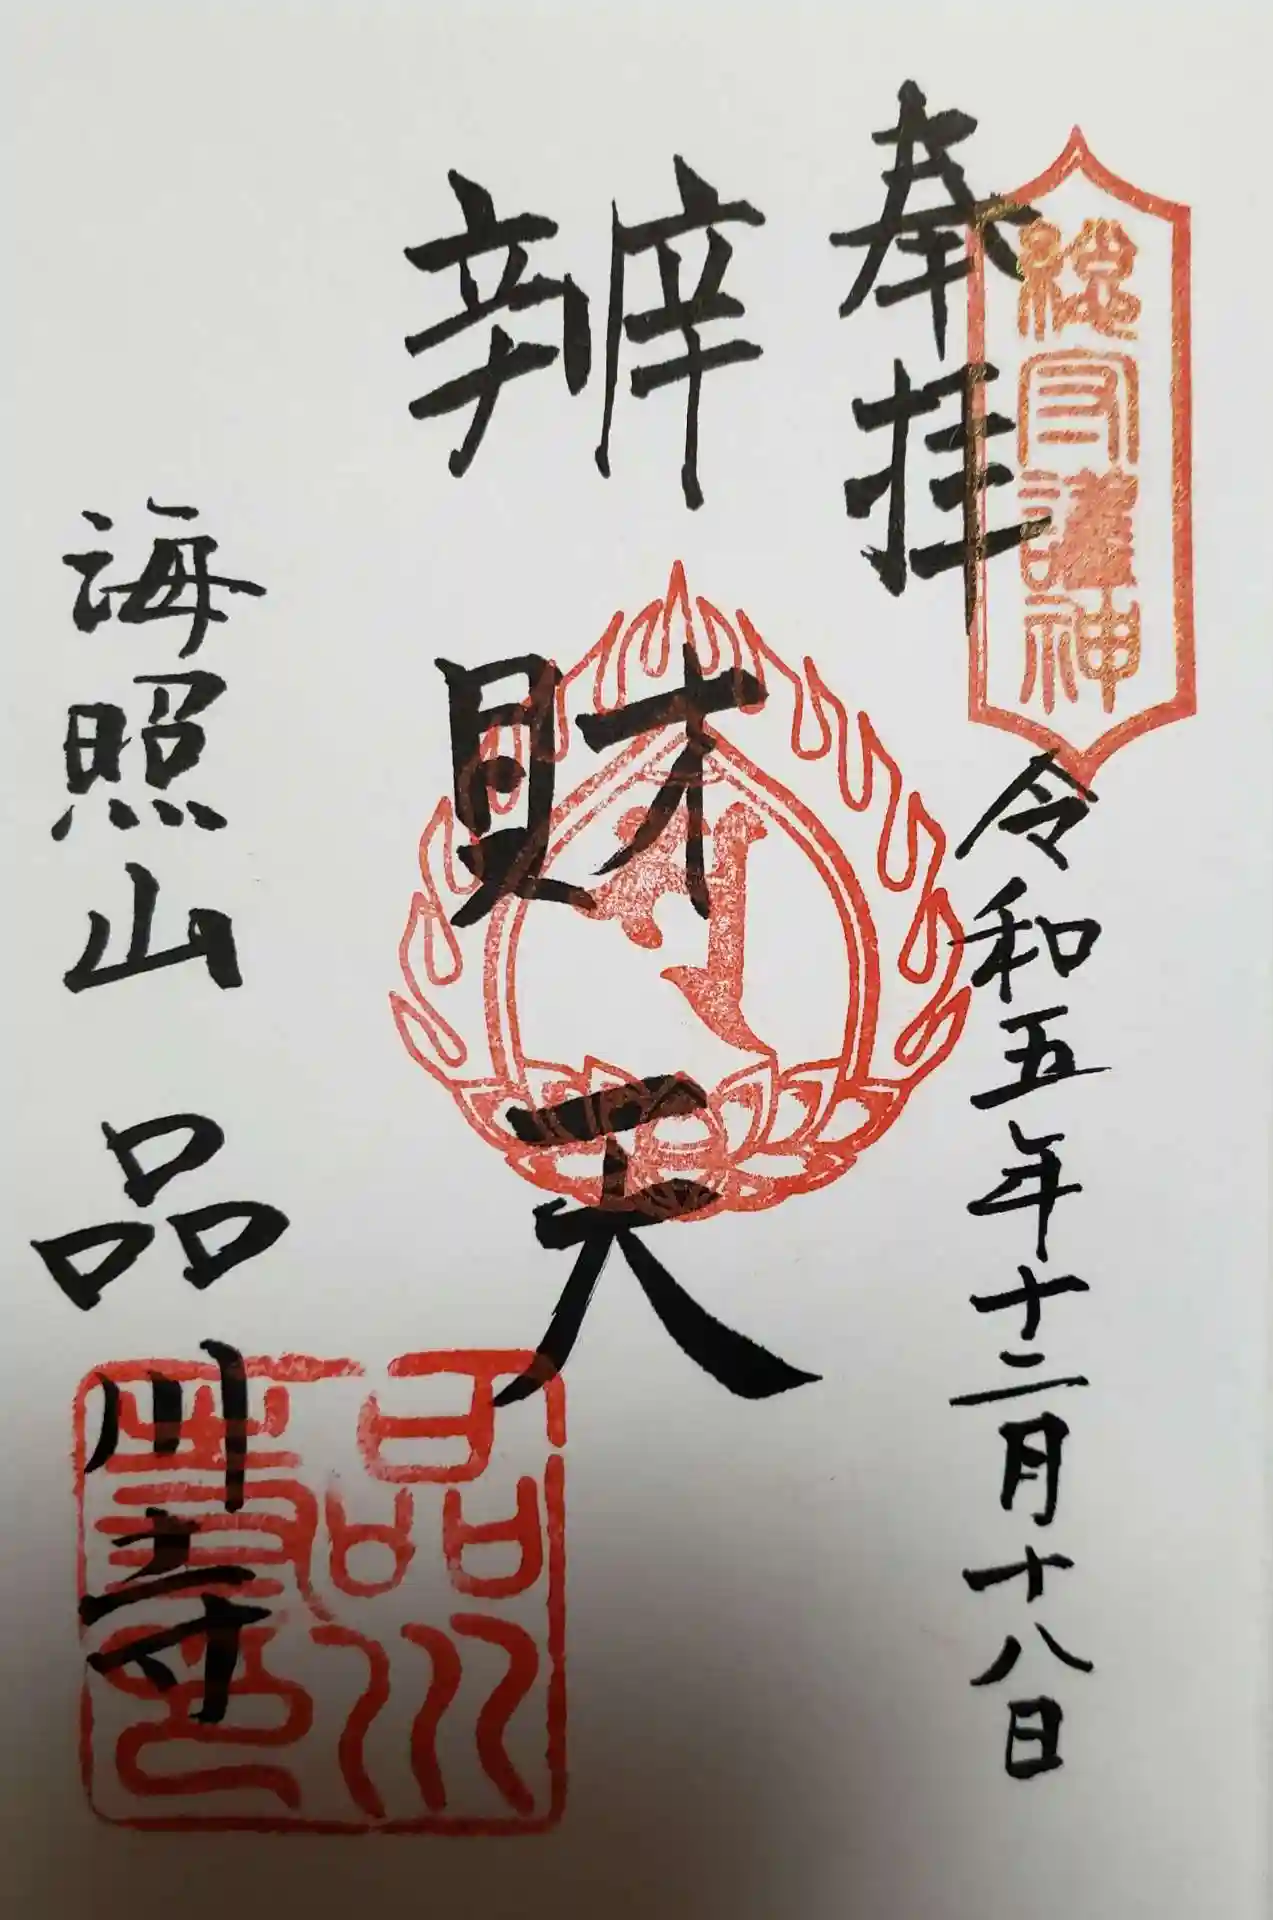 奉拝
総守護神
令和五年十二月十八日
辨財天
海照山 品川寺
品川寺印